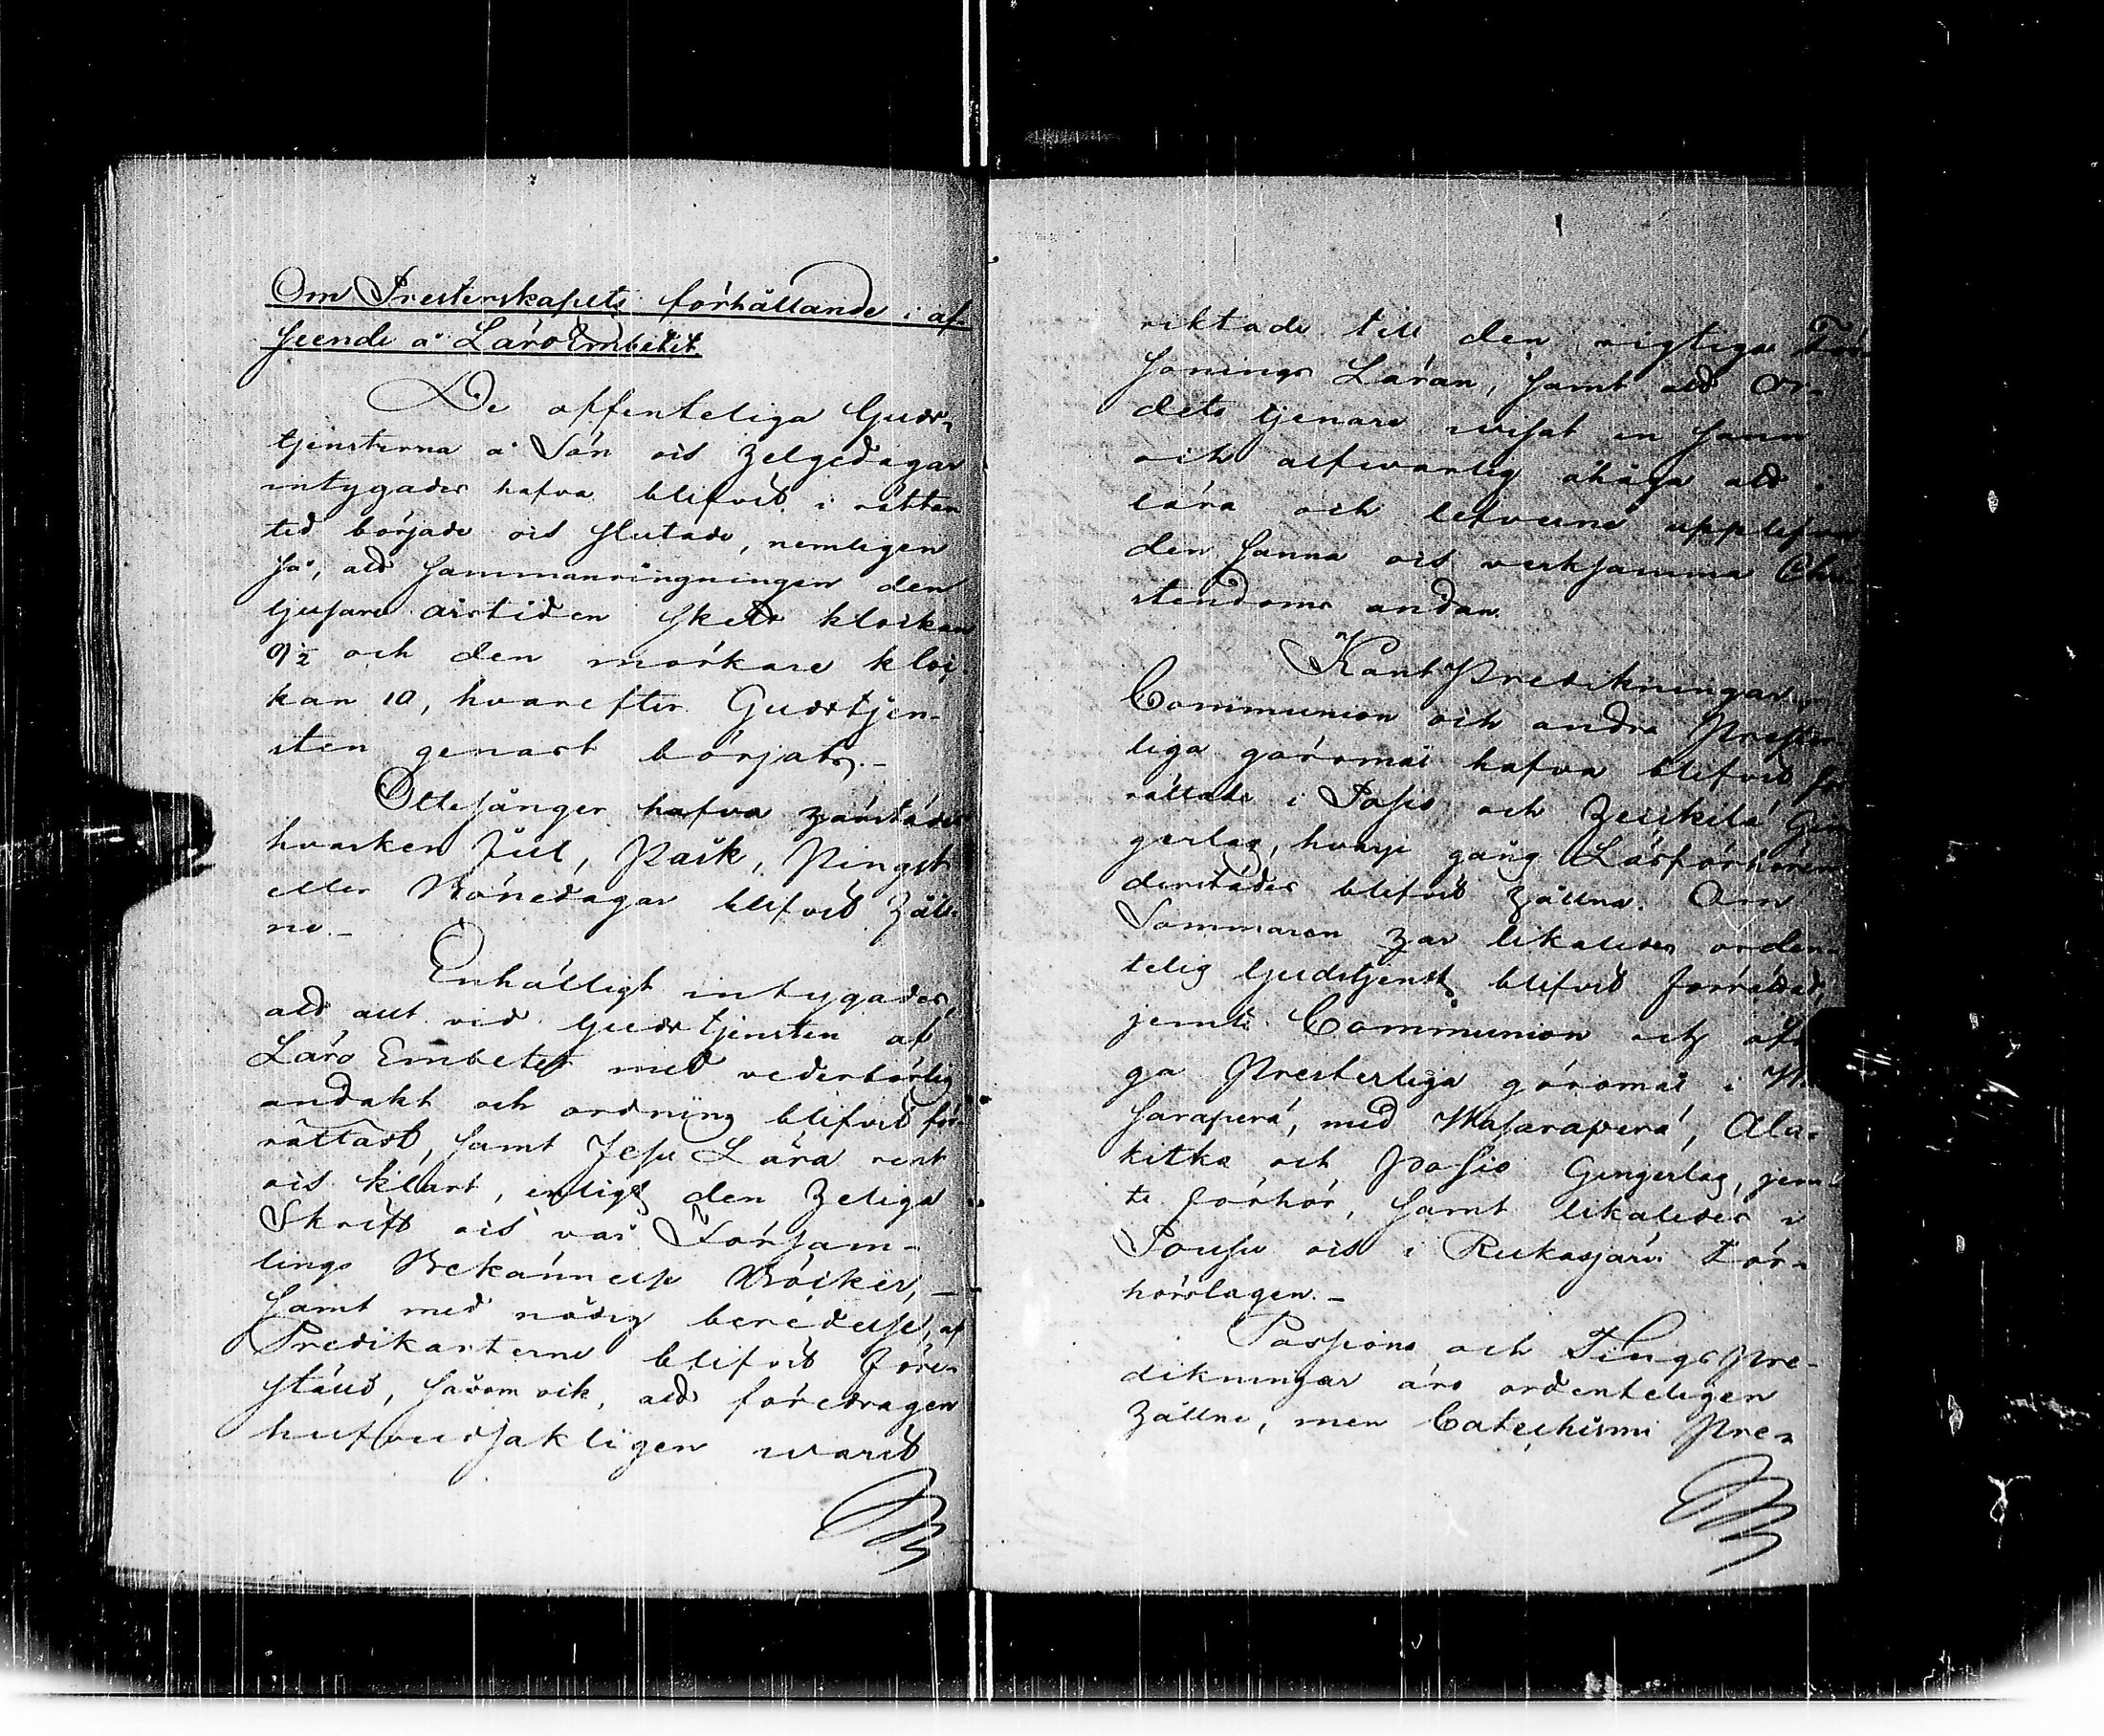 Om Presterskapets förhållande i af-
seende å Läro Embetet.
De offenteliga Guds-
tjensterna å Sön och Helgedagar
intygades hafva blifvit i rättan
tid började och slutade, nemligen
så, att sammanringningen den
ljusare årstiden skett klockan
9½ och den mörkare kloc-
kan 10, hvarefter Gudstjen-
sten genast börjats.-
Ottesånger hafva härstädes
hvarken Jul, Påsk, Pingst
eller Bönedagar blifvit håll-
ne.-
Enhälligt intygades,
att allt vid Gudstjensten af
Läro Embetet med vederbörlig
andakt och ordning blifvit för-
rättadt, samt Jesu Lära rent
och klart, enligt den Heliga
Skrift och vår Församm-
lings Bekännelse Böcker,-
samt med nödig beredelse, af
Predikanterne blifvit före-
stäld, såsom ock, att föredragen
hufvudsakligen warit
riktade till den rigtiga För-
sonings Läran, samt att Or-
dets tjenare wisat en sann
och alfvarlig åhåga att i
lära och lefverne upplifva
den sanna och verksamma Chri-
stendoms andan.
Kant Predikningar,
Communion och andra Prester-
liga göromål hafva blifvit för-
rättade i Posio och Heikkilä Gin-
gerlag, hvarje gång Läsförhören
derstädes blifvit hållna. Om
Sommaren har likaledes orden-
telig Gudstjenst blifvit förrättad,
jemte Communion och öfri-
ga Presterliga göromål i
saraperä, med Wasaraperä, Ala-
kitka och Posio Gingerlag, jem-
te förhör, samt likaledes i
Sousu och i Rukajärvi För-
hörslagen.-
Passions och Tings Pre-
dikningar äro ordenteligen
hållne, men Catechismi Pre-